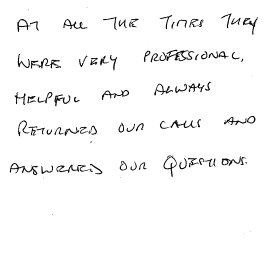 AT ALL THE TIMES THEY
WERE VERY PROFESSIONAL,
HELPFUL AND ALWAYS
RETURNED OUR CALLS AND
ANSWERED OUR QUESTIONS.